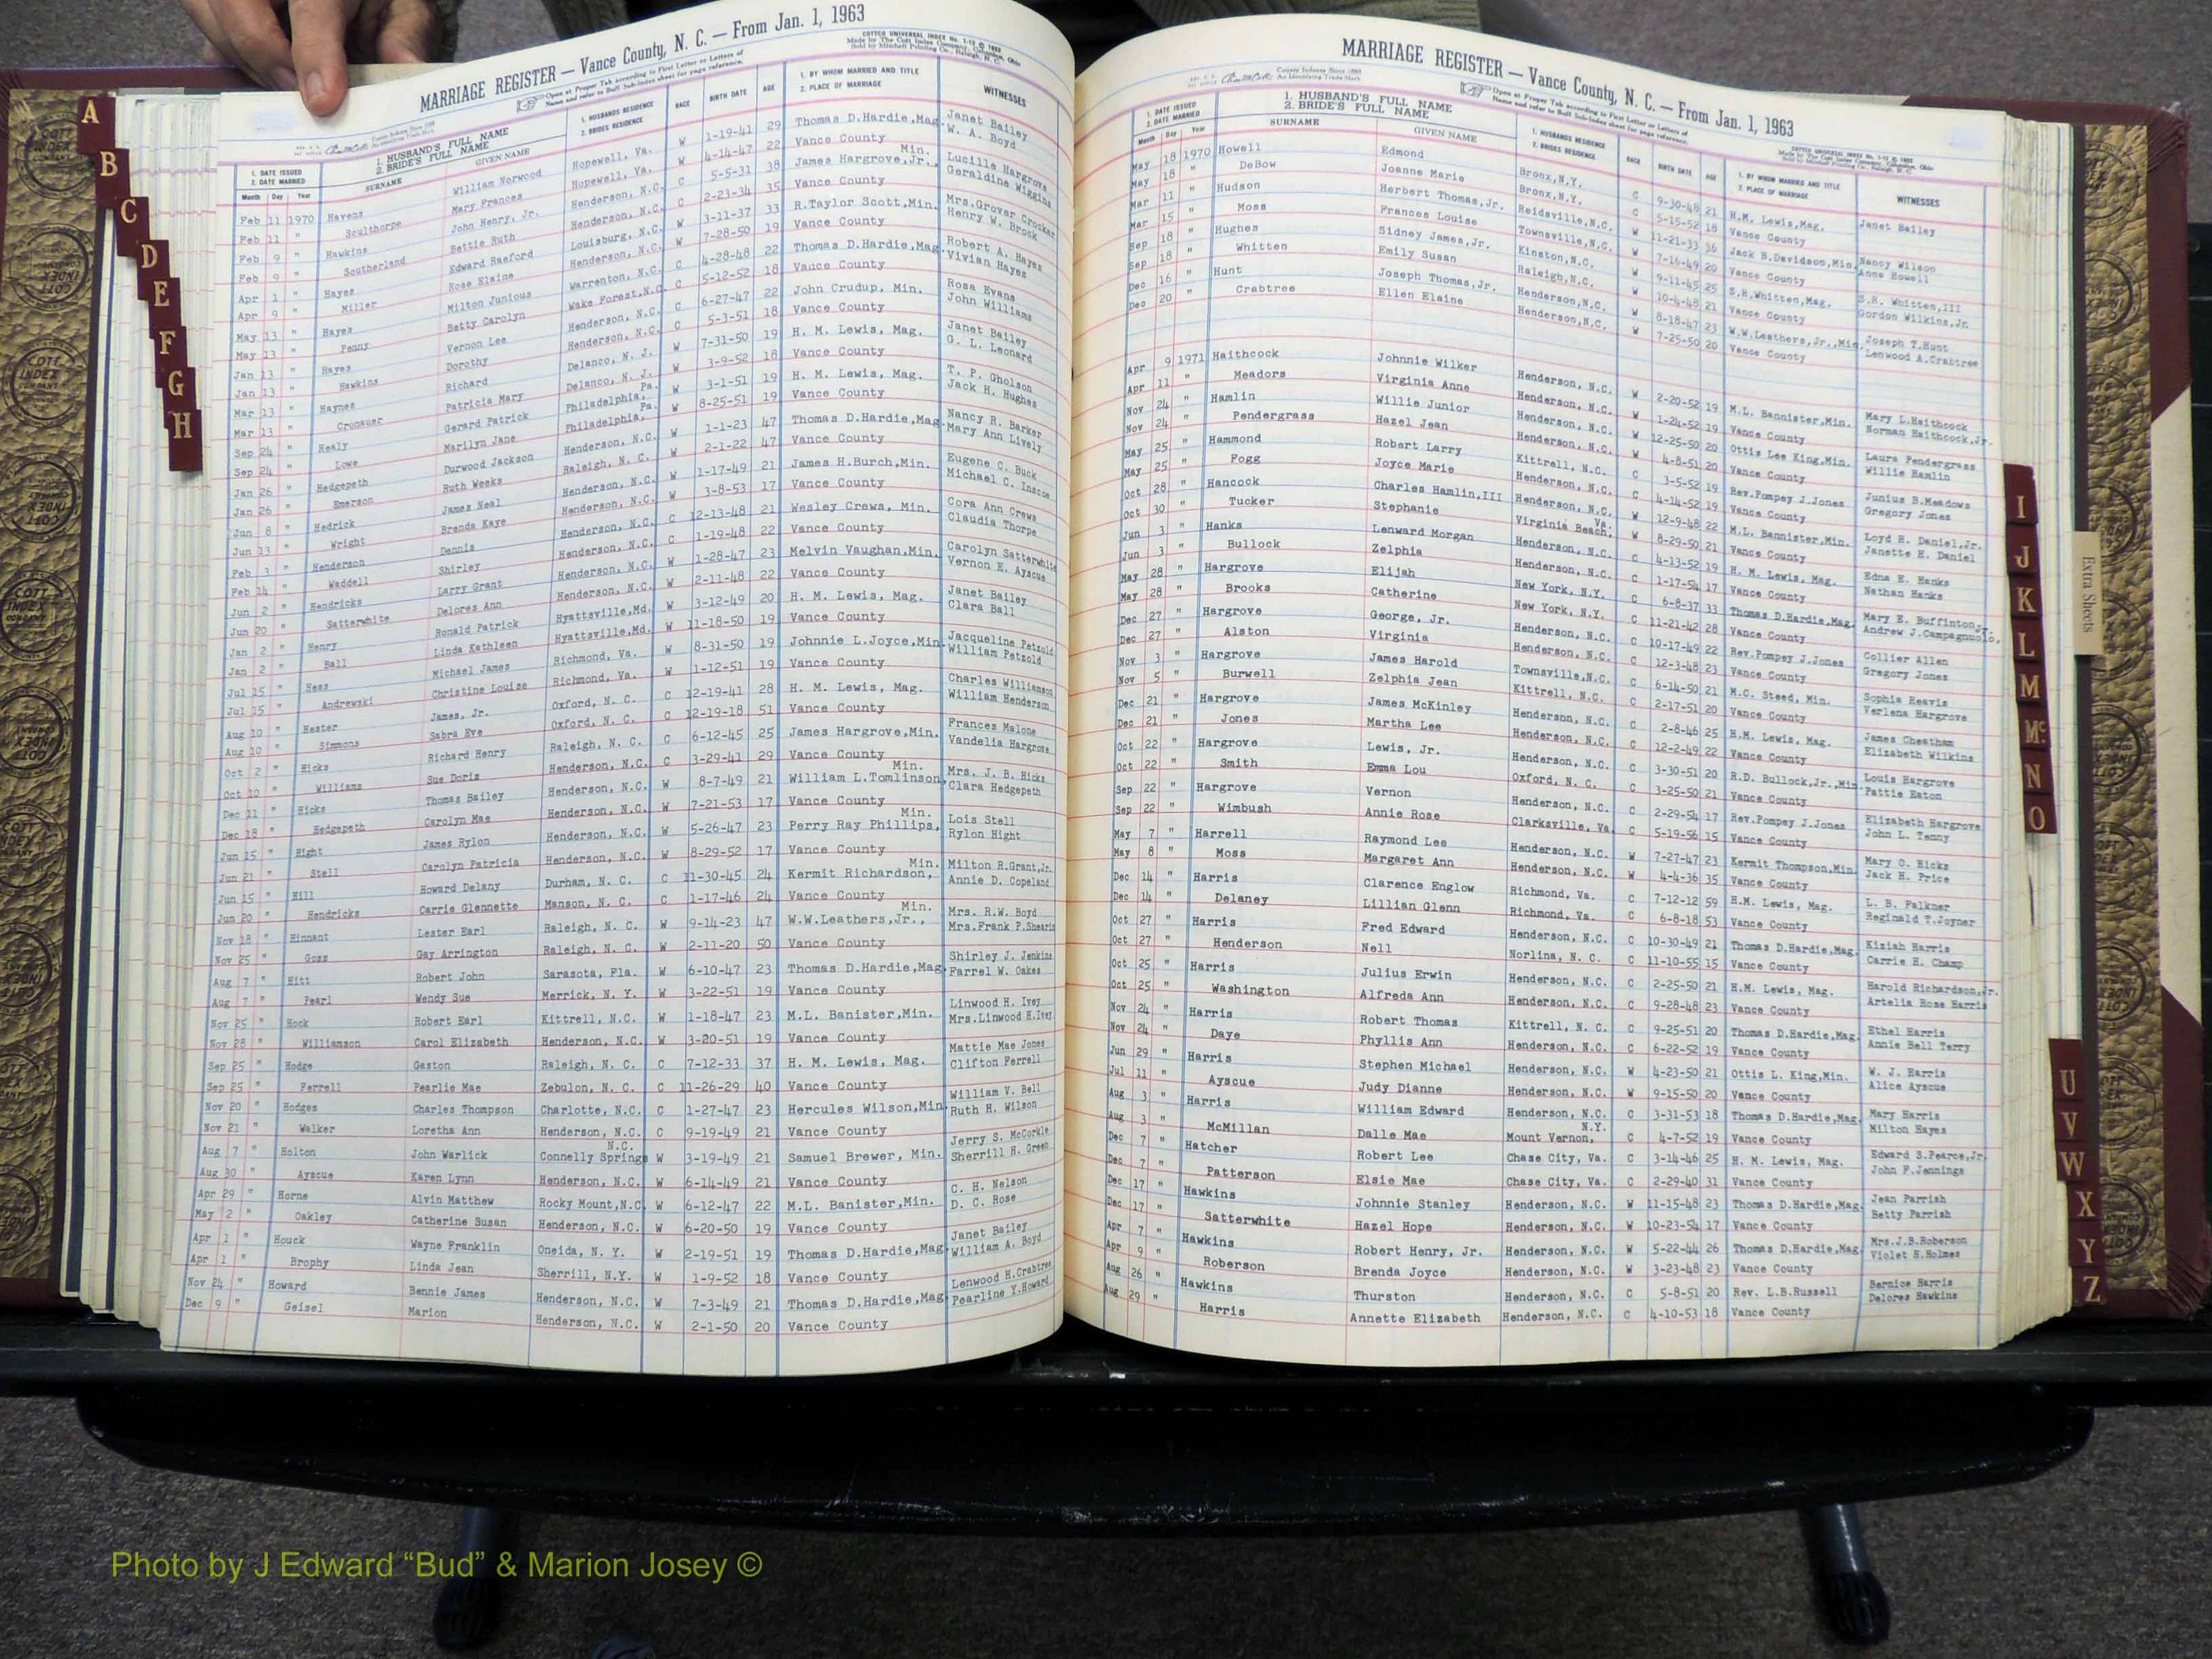 MARRIAGE REGISTER — Vance County, N. C. — From Jan. 1, 1963
COTTCO UNIVERSAL INDEX No. 1-12 © 1962
Made by The Cott Index Company, Columbus, Ohio
Sold by Mitchell Printing Co., Raleigh, N. C.
Open at Proper Tab according to First Letter or Letters of
Name and refer to Buff Sub-index sheet for page reference.
County Indexes Since 1888
An Identifying Trade Mark
1. DATE ISSUED 2. DATE MARRIED Month Day Year
1. HUSBAND'S FULL NAME 2. BRIDE'S FULL NAME SURNAME GIVEN NAME
1. HUSBANDS RESIDENCE 2. BRIDES RESIDENCE RACE BIRTH DATE AGE
1. BY WHOM MARRIED AND TITLE 2. PLACE OF MARRIAGE WITNESSES
Feb 11 1970 Havens William Norwood Hopewell, Va. W 1-19-41 29 Thomas D.Hardie,Mag. Janet Bailey
Feb 11 " Sculthorpe Mary Frances Hopewell, Va. W 4-14-47 22 Vance County W. A. Boyd
Feb 9 " Hawkins John Henry, Jr. Henderson, N.C. C 5-5-31 38 James Hargrove,Jr., Min. Lucille Hargrove
Feb 9 " Southerland Bettie Ruth Henderson, N.C. C 2-23-34 35 Vance County Geraldine Wiggins
Apr 1 " Hayes Edward Raeford Louisburg, N.C. W 3-11-37 33 R.Taylor Scott,Min. Mrs.Grover Crocker
Apr 9 " Miller Rose Elaine Henderson, N.C. W 7-28-50 19 Vance County Henry W. Brock
May 13 " Hayes Milton Junious Warrenton, N.C. C 4-28-48 22 Thomas D.Hardie,Mag. Robert A. Hayes
May 13 " Penny Betty Carolyn Wake Forest,N.C. C 5-12-52 18 Vance County Vivian Hayes
Jan 13 " Hayes Vernon Lee Henderson, N.C. C 6-27-47 22 John Crudup, Min. Rosa Evans
Jan 13 " Hawkins Dorothy Henderson, N.C. C 5-3-51 18 Vance County John Williams
Mar 13 " Haynes Richard Delanco, N. J. W 7-31-50 19 H. M. Lewis, Mag. Janet Bailey
Mar 13 " Cronauer Patricia Mary Delanco, N. J. W 3-9-52 18 Vance County G. L. Leonard
Sep 24 " Healy Gerard Patrick Philadelphia, Pa. W 3-1-51 19 H. M. Lewis, Mag. T. P. Gholson
Sep 24 " Lowe Marilyn Jane Philadelphia, Pa. W 8-25-51 19 Vance County Jack H. Hughes
Jan 26 " Hedgepeth Durwood Jackson Henderson, N.C. W 1-1-23 47 Thomas D.Hardie,Mag. Nancy R. Barker
Jan 26 " Emerson Ruth Weeks Raleigh, N. C. W 2-1-22 47 Vance County Mary Ann Lively
Jun 8 " Hedrick James Neal Henderson, N.C. W 1-17-49 21 James H.Burch,Min. Eugene C. Buck
Jun 13 " Wright Brenda Kaye Henderson, N.C. W 3-8-53 17 Vance County Michael C. Inscoe
Feb 3 " Henderson Dennis Henderson, N.C. C 12-13-48 21 Wesley Crews, Min. Cora Ann Crews
Feb 14 " Waddell Shirley Henderson, N.C. C 1-19-48 22 Vance County Claudia Thorpe
Jun 2 " Hendricks Larry Grant Henderson, N.C. W 1-28-47 23 Melvin Vaughan,Min. Carolyn Satterwhite
Jun 20 " Satterwhite Delores Ann Henderson, N.C. W 2-11-48 22 Vance County Vernon E. Ayscue
Jan 2 " Henry Ronald Patrick Hyattsville,Md. W 3-12-49 20 H. M. Lewis, Mag. Janet Bailey
Jan 2 " Ball Linda Kathleen Hyattsville,Md. W 11-18-50 19 Vance County Clara Ball
Jul 15 " Hess Michael James Richmond, Va. W 8-31-50 19 Johnnie L.Joyce,Min. Jacqueline Petzold
Jul 15 " Andrewski Christine Louise Richmond, Va. W 1-12-51 19 Vance County William Petzold
Aug 10 " Hester James, Jr. Oxford, N. C. C 12-19-41 28 H. M. Lewis, Mag. Charles Williamson
Aug 10 " Simmons Sabra Eve Oxford, N. C. C 12-19-18 51 Vance County William Henderson
Oct 2 " Hicks Richard Henry Raleigh, N. C. C 6-12-45 25 James Hargrove,Min. Frances Malone
Oct 10 " Williams Sue Doris Henderson, N.C. C 3-29-41 29 Vance County Vandelia Hargrove
Dec 11 " Hicks Thomas Bailey Henderson, N.C. W 8-7-49 21 William L.Tomlinson, Min. Mrs. J. B. Hicks
Dec 18 " Hedgepeth Carolyn Mae Henderson, N.C. W 7-21-53 17 Vance County Clara Hedgepeth
Jun 15 " Hight James Rylon Henderson, N.C. W 5-26-47 23 Perry Ray Phillips, Min. Lois Stell
Jun 21 " Stell Carolyn Patricia Henderson, N.C. W 8-29-52 17 Vance County Rylon Hight
Jun 15 " Hill Howard Delany Durham, N. C. C 11-30-45 24 Kermit Richardson, Min. Milton R.Grant,Jr.
Jun 20 " Hendricks Carrie Glennette Manson, N. C. C 1-17-46 24 Vance County Annie D. Copeland
Nov 18 " Hinnant Lester Earl Raleigh, N. C. W 9-14-23 47 W.W.Leathers,Jr., Min. Mrs. R.W. Boyd
Nov 25 " Goss Gay Arrington Raleigh, N. C. W 2-11-20 50 Vance County Mrs.Frank P.Shearin
Aug 7 " Hitt Robert John Sarasota, Fla. W 6-10-47 23 Thomas D.Hardie,Mag. Shirley J. Jenkins
Aug 7 " Pearl Wendy Sue Merrick, N. Y. W 3-22-51 19 Vance County Farrel W. Oakes
Nov 25 " Hock Robert Earl Kittrell, N.C. W 1-18-47 23 M.L. Banister,Min. Linwood H. Ivey
Nov 28 " Williamson Carol Elizabeth Henderson, N.C. W 3-20-51 19 Vance County Mrs.Linwood H.Ivey
Sep 25 " Hodge Gaston Raleigh, N. C. C 7-12-33 37 H. M. Lewis, Mag. Mattie Mae Jones
Sep 25 " Ferrell Pearlie Mae Zebulon, N. C. C 11-26-29 40 Vance County Clifton Ferrell
Nov 20 " Hodges Charles Thompson Charlotte, N.C. C 1-27-47 23 Hercules Wilson,Min. William V. Bell
Nov 21 " Walker Loretha Ann Henderson, N.C. C 9-19-49 21 Vance County Ruth H. Wilson
Aug 7 " Holton John Warlick Connelly Springs N.C. W 3-19-49 21 Samuel Brewer, Min. Jerry S. McCorkle
Aug 30 " Ayscue Karen Lynn Henderson, N.C. W 6-14-49 21 Vance County Sherrill H. Green
Apr 29 " Horne Alvin Matthew Rocky Mount,N.C. W 6-12-47 22 M.L. Banister,Min. C. H. Nelson
May 2 " Oakley Catherine Susan Henderson, N.C. W 6-20-50 19 Vance County D. C. Rose
Apr 1 " Houck Wayne Franklin Oneida, N. Y. W 2-19-51 19 Thomas D.Hardie,Mag. Janet Bailey
Apr 1 " Brophy Linda Jean Sherrill, N.Y. W 1-9-52 18 Vance County William A. Boyd
Nov 24 " Howard Bennie James Henderson, N.C. W 7-3-49 21 Thomas D.Hardie,Mag. Lenwood H.Crabtree
Dec 9 " Geisel Marion Henderson, N.C. W 2-1-50 20 Vance County Pearline Y.Howard
MARRIAGE REGISTER — Vance County, N. C. — From Jan. 1, 1963
County Indexes Since 1888
An Identifying Trade Mark
Open at Proper Tab according to First Letter or Letters of
Name and refer to Buff Sub-index sheet for page reference.
COTTCO UNIVERSAL INDEX No. 1-12 © 1962
Made by The Cott Index Company, Columbus, Ohio
Sold by Mitchell Printing Co., Raleigh, N. C.
1. DATE ISSUED 2. DATE MARRIED Month Day Year
1. HUSBAND'S FULL NAME 2. BRIDE'S FULL NAME SURNAME GIVEN NAME
1. HUSBANDS RESIDENCE 2. BRIDES RESIDENCE RACE BIRTH DATE AGE
1. BY WHOM MARRIED AND TITLE 2. PLACE OF MARRIAGE WITNESSES
May 18 1970 Howell Edmond Bronx,N.Y. C 9-30-48 21 H.M. Lewis,Mag. Janet Bailey
May 18 " DeBow Joanne Marie Bronx,N.Y. C 5-15-52 18 Vance County
Mar 11 " Hudson Herbert Thomas,Jr. Reidsville,N.C. W 11-21-33 36 Jack B.Davidson,Min. Nancy Wilson
Mar 15 " Moss Frances Louise Townsville,N.C. W 7-16-49 20 Vance County Anne Howell
Sep 18 " Hughes Sidney James,Jr. Kinston,N.C. W 9-11-45 25 S.R.Whitten,Mag. S.R. Whitten,III
Sep 18 " Whitten Emily Susan Raleigh,N.C. W 10-4-48 21 Vance County Gordon Wilkins,Jr.
Dec 16 " Hunt Joseph Thomas,Jr. Henderson,N.C. W 8-18-47 23 W.W.Leathers,Jr.,Min. Joseph T.Hunt
Dec 20 " Crabtree Ellen Elaine Henderson,N.C. W 7-25-50 20 Vance County Lenwood A.Crabtree
Apr 9 1971 Haithcock Johnnie Wilker Henderson, N.C. W 2-20-52 19 M.L. Bannister,Min. Mary L.Haithcock
Apr 11 " Meadors Virginia Anne Henderson, N.C. W 1-24-52 19 Vance County Norman Haithcock,Jr.
Nov 24 " Hamlin Willie Junior Henderson, N.C. W 12-25-50 20 Ottis Lee King,Min. Laura Pendergrass
Nov 24 " Pendergrass Hazel Jean Henderson, N.C. W 4-8-51 20 Vance County Willie Hamlin
May 25 " Hammond Robert Larry Kittrell, N.C. C 3-5-52 19 Rev.Pompey J.Jones Junius B.Meadows
May 25 " Fogg Joyce Marie Henderson, N.C. C 4-14-52 19 Vance County Gregory Jones
Oct 28 " Hancock Charles Hamlin,III Henderson, N.C. W 12-9-48 22 M.L. Bannister,Min. Loyd R. Daniel,Jr.
Oct 30 " Tucker Stephanie Virginia Beach, Va. W 8-29-50 21 Vance County Janette H. Daniel
Jun 3 " Hanks Lenward Morgan Henderson, N.C. C 4-13-52 19 H. M. Lewis, Mag. Edna E. Hanks
Jun 3 " Bullock Zelphia Henderson, N.C. C 1-17-54 17 Vance County Nathan Hanks
May 28 " Hargrove Elijah New York, N.Y. C 6-8-37 33 Thomas D.Hardie,Mag. Mary E. Buffinton
May 28 " Brooks Catherine New York, N.Y. C 11-21-42 28 Vance County Andrew J.Campagnuolo, Jr.
Dec 27 " Hargrove George, Jr. Henderson, N.C. C 10-17-49 22 Rev.Pompey J.Jones Collier Allen
Dec 27 " Alston Virginia Henderson, N.C. C 12-3-48 23 Vance County Gregory Jones
Nov 3 " Hargrove James Harold Townsville,N.C. C 6-14-50 21 M.C. Steed, Min. Sophia Reavis
Nov 5 " Burwell Zelphia Jean Kittrell, N.C. C 2-17-51 20 Vance County Verlena Hargrove
Dec 21 " Hargrove James McKinley Henderson, N.C. C 2-8-46 25 H.M. Lewis, Mag. James Cheatham
Dec 21 " Jones Martha Lee Henderson, N.C. C 12-2-49 22 Vance County Elizabeth Wilkins
Oct 22 " Hargrove Lewis, Jr. Henderson, N.C. C 3-30-51 20 R.D. Bullock,Jr.,Min. Louis Hargrove
Oct 22 " Smith Emma Lou Oxford, N. C. C 3-25-50 21 Vance County Pattie Eaton
Sep 22 " Hargrove Vernon Henderson, N.C. C 2-29-54 17 Rev.Pompey J.Jones Elizabeth Hargrove
Sep 22 " Wimbush Annie Rose Clarksville, Va. C 5-19-56 15 Vance County John L. Tenny
May 7 " Harrell Raymond Lee Henderson, N.C. W 7-27-47 23 Kermit Thompson,Min. Mary O. Hicks
May 8 " Moss Margaret Ann Henderson, N.C. W 4-4-36 35 Vance County Jack H. Price
Dec 14 " Harris Clarence Englow Richmond, Va. C 7-12-12 59 H.M. Lewis, Mag. L. B. Falkner
Dec 14 " Delaney Lillian Glenn Richmond, Va. C 6-8-18 53 Vance County Reginald T.Joyner
Oct 27 " Harris Fred Edward Henderson, N.C. C 10-30-49 21 Thomas D.Hardie,Mag. Kiziah Harris
Oct 27 " Henderson Nell Norlina, N. C. C 11-10-55 15 Vance County Carrie H. Champ
Oct 25 " Harris Julius Erwin Henderson, N.C. C 2-25-50 21 H.M. Lewis, Mag. Harold Richardson,Jr.
Oct 25 " Washington Alfreda Ann Henderson, N.C. C 9-28-48 23 Vance County Artelia Rose Harris
Nov 24 " Harris Robert Thomas Kittrell, N. C. C 9-25-51 20 Thomas D.Hardie,Mag. Ethel Harris
Nov 24 " Daye Phyllis Ann Henderson, N.C. C 6-22-52 19 Vance County Annie Bell Terry
Jun 29 " Harris Stephen Michael Henderson, N.C. W 4-23-50 21 Ottis L. King,Min. W. J. Harris
Jul 11 " Ayscue Judy Dianne Henderson, N.C. W 9-15-50 20 Vance County Alice Ayscue
Aug 3 " Harris William Edward Henderson, N.C. C 3-31-53 18 Thomas D.Hardie,Mag. Mary Harris
Aug 3 " McMillan Dalle Mae Mount Vernon, N.Y. C 4-7-52 19 Vance County Milton Hayes
Dec 7 " Hatcher Robert Lee Chase City, Va. C 3-14-46 25 H. M. Lewis, Mag. Edward S.Pearce,Jr.
Dec 7 " Patterson Elsie Mae Chase City, Va. C 2-29-40 31 Vance County John F.Jennings
Dec 17 " Hawkins Johnnie Stanley Henderson, N.C. W 11-15-48 23 Thomas D.Hardie,Mag. Jean Parrish
Dec 17 " Satterwhite Hazel Hope Henderson, N.C. W 10-23-54 17 Vance County Betty Parrish
Apr 7 " Hawkins Robert Henry, Jr. Henderson, N.C. W 5-22-44 26 Thomas D.Hardie,Mag. Mrs.J.B.Roberson
Apr 9 " Roberson Brenda Joyce Henderson, N.C. W 3-23-48 23 Vance County Violet H.Holmes
Aug 26 " Hawkins Thurston Henderson, N.C. C 5-8-51 20 Rev. L.B.Russell Bernice Harris
Aug 29 " Harris Annette Elizabeth Henderson, N.C. C 4-10-53 18 Vance County Delores Hawkins
A
B
C
D
E
F
G
H
I
J
K
L
M
Mc
N
O
U
V
W
X
Y
Z
Extra Sheets
COTT INDEX COMPANY
Photo by J Edward “Bud” & Marion Josey ©